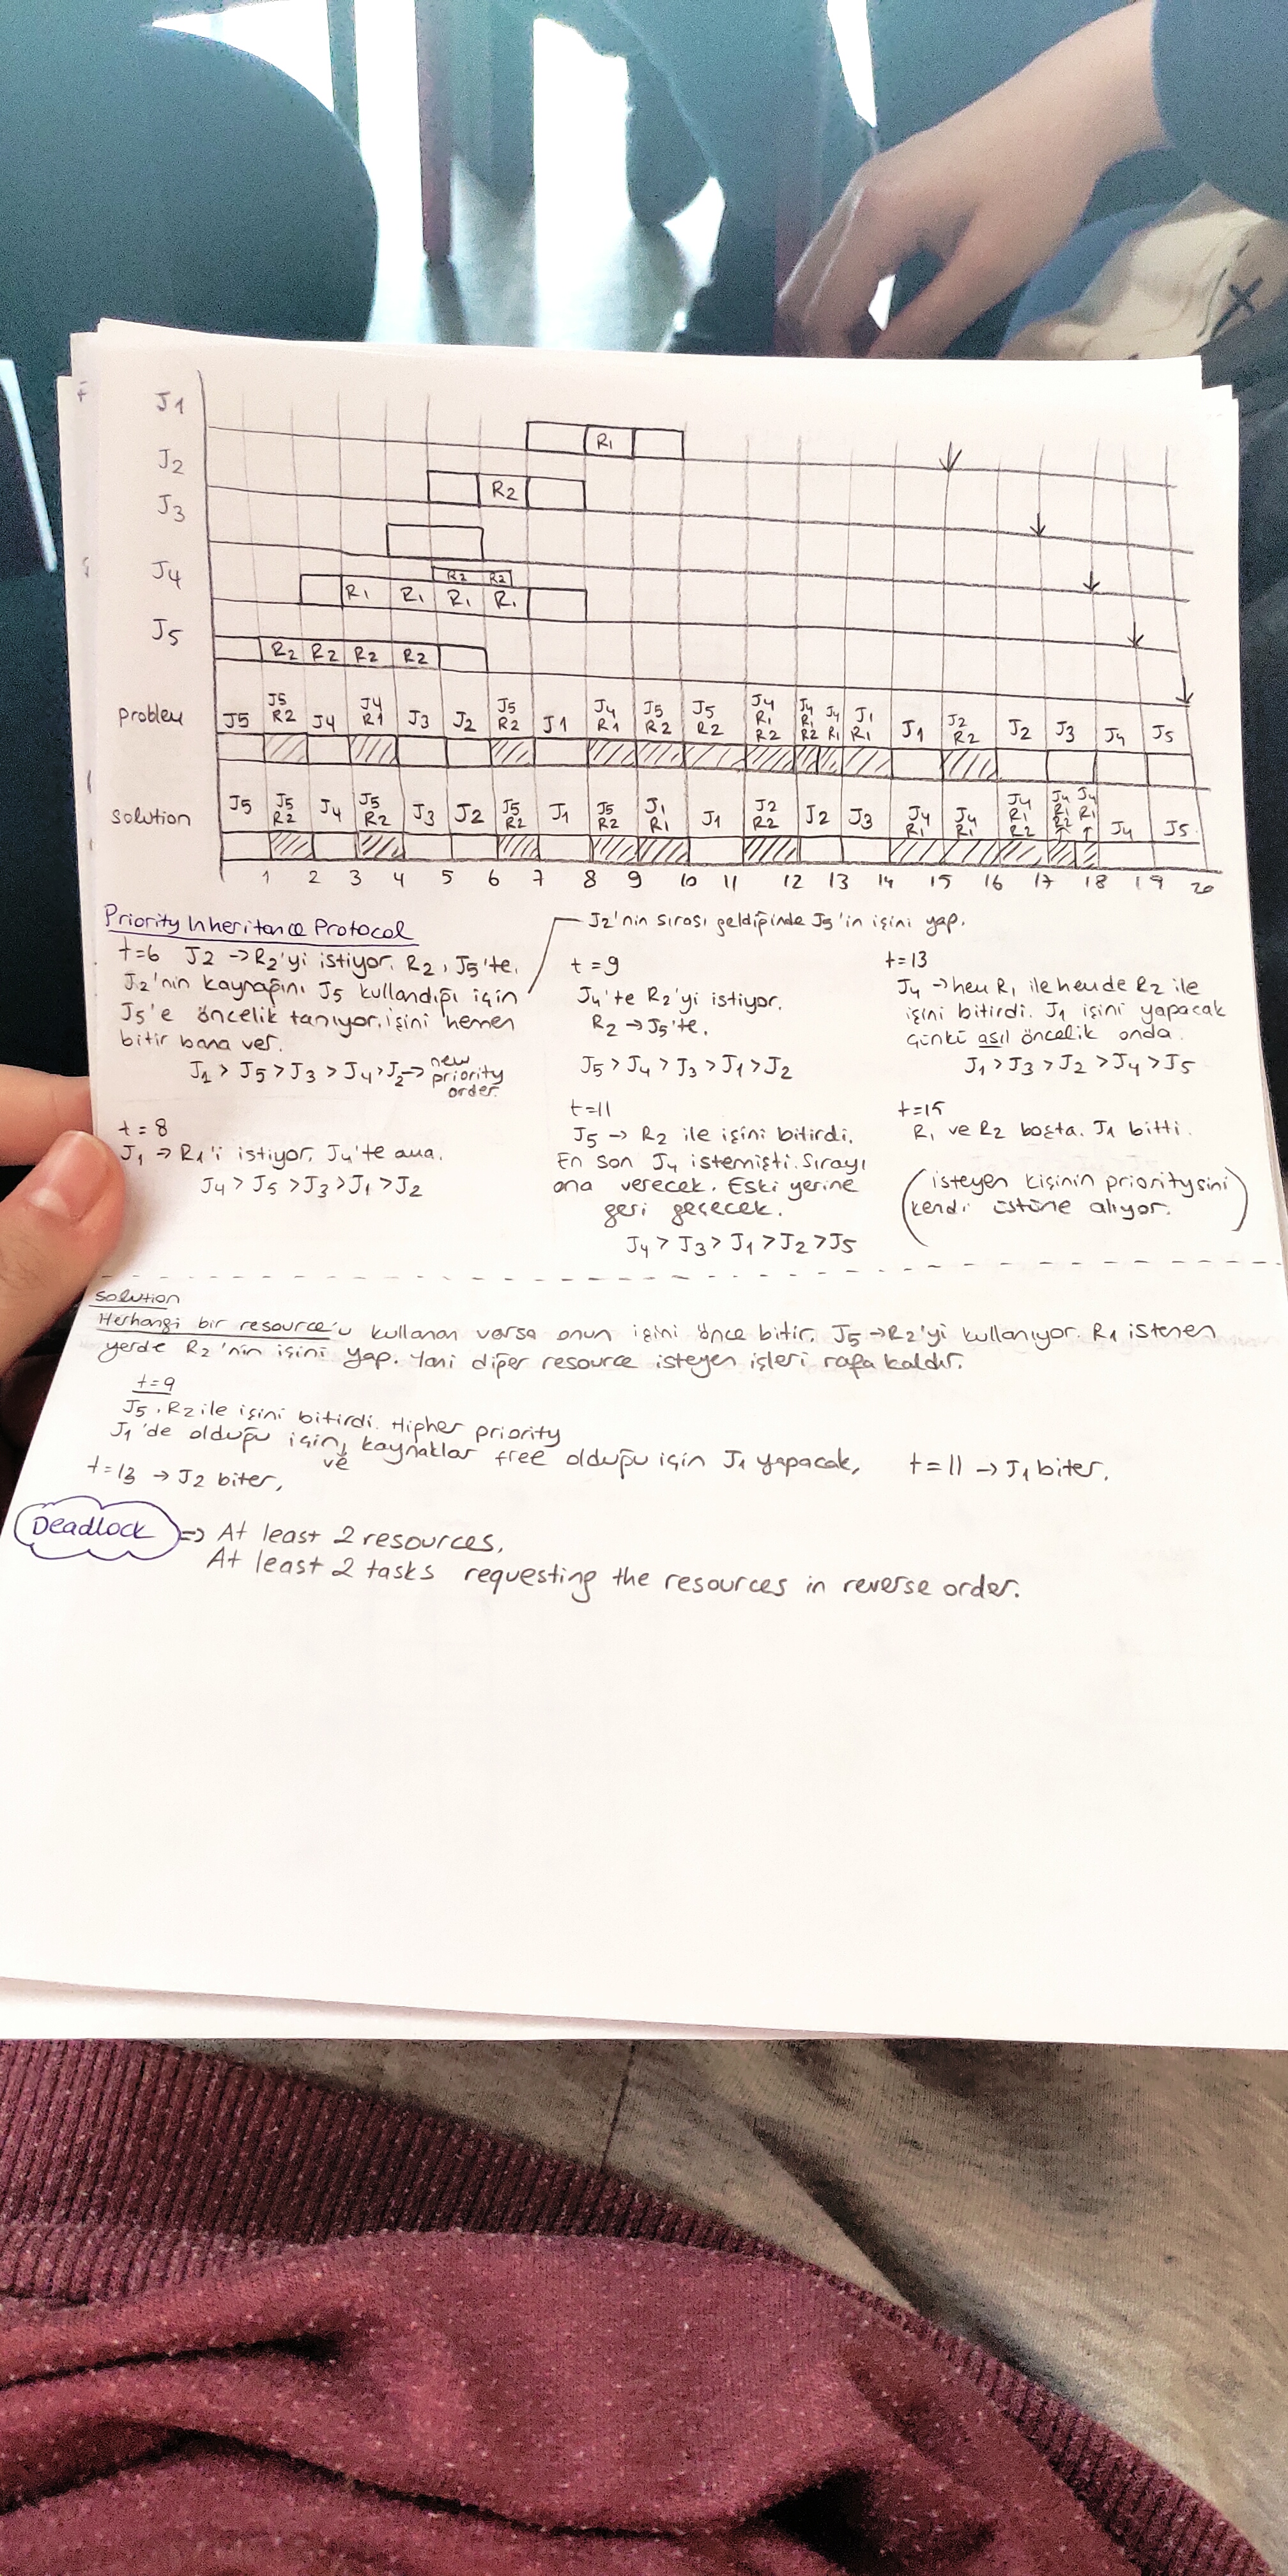 J1
R1
J2
R2
J3
J4
R2 R2
R1 R1 R1 R1
J5
R2 R2 R2 R2
problem J5 J5 R2 J4 J4 R1 J3 J2 J5 R2 J1 J4 R1 J5 R2 J5 R2 J4 R1 R2 J4 R1 R2 J4 R1 J1 R1 J1 J2 R2 J2 J3 J4 J5
solution J5 J5 R2 J4 J5 R2 J3 J2 J5 R2 J1 J5 R2 J1 R1 J1 J2 R2 J2 J3 J4 R1 J4 R1 J4 R1 R2 J4 R1 R2 J4 R1 J4 J5
1 2 3 4 5 6 7 8 9 10 11 12 13 14 15 16 17 18 19 20
Priority Inheritance Protocol
J2'nin sırası geldiğinde J5'in işini yap.
t=6 J2 → R2'yi istiyor. R2, J5'te.
J2'nin kaynağını J5 kullandığı için
J5'e öncelik tanıyor. işini hemen
bitir bana ver.
J1 > J5 > J3 > J4 > J2 → new priority order.
t = 8
J1 → R1'i istiyor. J4'te ama.
J4 > J5 > J3 > J1 > J2
t = 9
J4'te R2'yi istiyor.
R2 → J5'te.
J5 > J4 > J3 > J1 > J2
t=11
J5 → R2 ile işini bitirdi.
En son J4 istemişti. Sırayı
ona verecek. Eski yerine
geri geçecek.
J4 > J3 > J1 > J2 > J5
t=13
J4 → hem R1 ile hemde R2 ile
işini bitirdi. J1 işini yapacak
çünkü asıl öncelik onda.
J1 > J3 > J2 > J4 > J5
t=15
R1 ve R2 boşta. J1 bitti.
(isteyen kişinin prioritysini
kendi üstüne alıyor.)
solution
Herhangi bir resource'u kullanan varsa onun işini önce bitir. J5 → R2'yi kullanıyor. R1 istenen
yerde R2'nin işini yap. Yani diğer resource isteyen işleri rafa kaldır.
t=9
J5, R2 ile işini bitirdi. Higher priority
J1'de olduğu için ve kaynaklar free olduğu için J1 yapacak, t=11 → J1 biter,
t=13 → J2 biter,
Deadlock => At least 2 resources,
At least 2 tasks requesting the resources in reverse order.